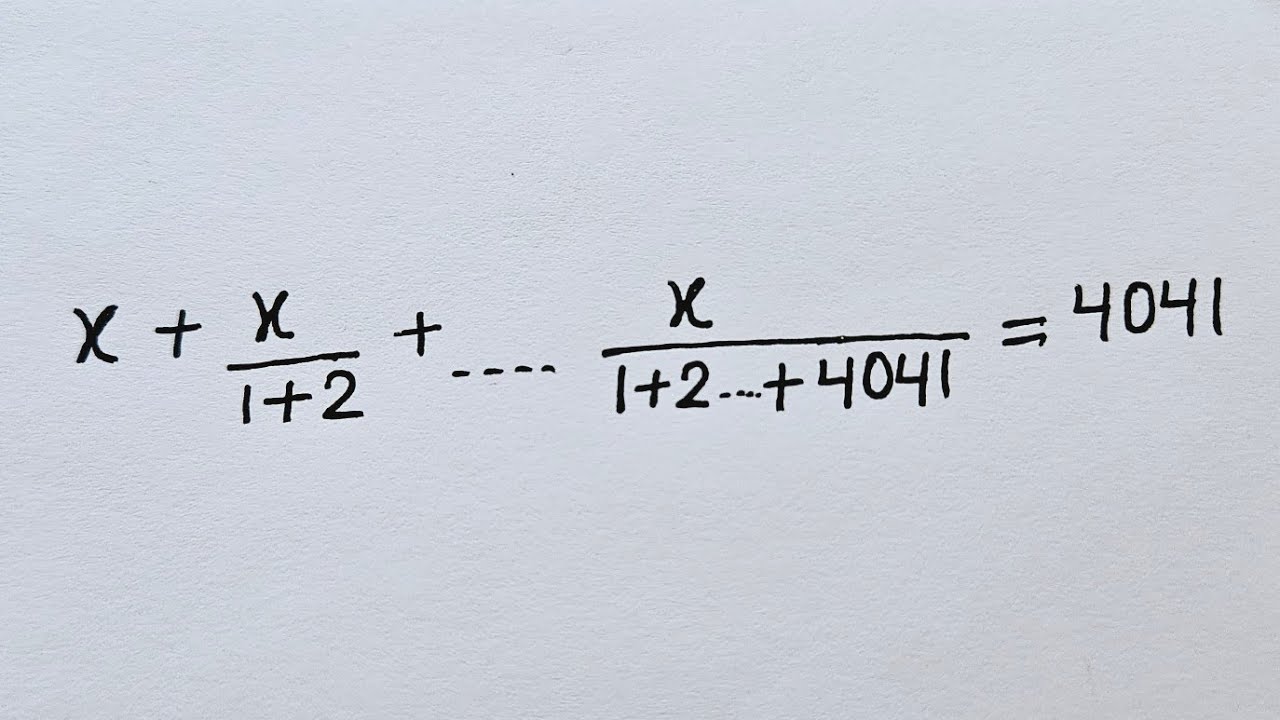 x + x/(1+2) + .... x/(1+2...+4041) = 4041